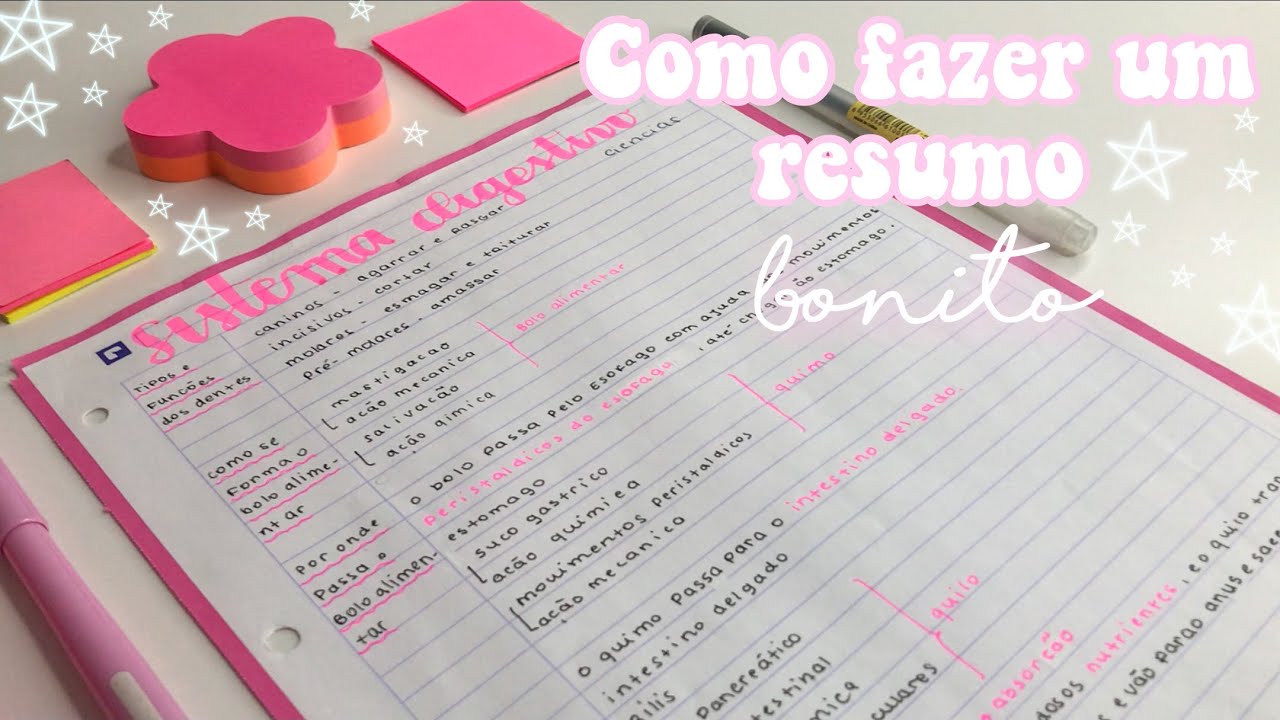 Como fazer um
resumo
bonito
sistema digestivo
ciencias
Tipos e
Funcões
dos dentes
caninos - agarrar e rasgar
incisivos - cortar
molares - esmagar e taiturar
Pré-molares - amassar
como se
Forma o
bolo alime-
ntar
mastigacao
acão mecanica
salivacão
acão qimica
Bolo alimentar
Por onde
Passa o
Bolo alimen-
tar
o bolo passa pelo esofago com ajuda movimentos
peristaldicos do esofago, até ao estomago.
estomago
suco gastrico
acão química
movimentos peristaldicos
acão mecanica
quimo
o quimo passa para o intestino delgado.
intestino delgado
bílis
Pancreático
quilo
absorção
nutrientes, e o quio
e vão parao anus e